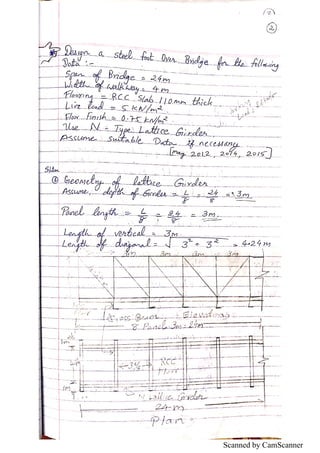 2
Design a steel foot Over Bridge for the following
Data :-
Span of Bridge = 24m
Width of walkway = 4m
Flooring = RCC Slab 110mm thick
Live load = 5 KN/m²
Floor Finish = 0.75 KN/m²
Use N - Type Lattice Girder
Assume Suitable Data if necessary
[May 2012, 2014, 2015]
Soln
① Geometry of lattice Girder
Assume, depth of Girder = L/8 = 24/8 = 3m
Panel length = L/8 = 24/8 = 3m.
Length of vertical = 3m
Length of diagonal = √3² + 3² = 4.24m
3m 3m 3m
Cross Beam Elevation
8 Panel 3m = 24m
RCC
Floor
Lattice Girder
24m
Plan
Scanned by CamScanner